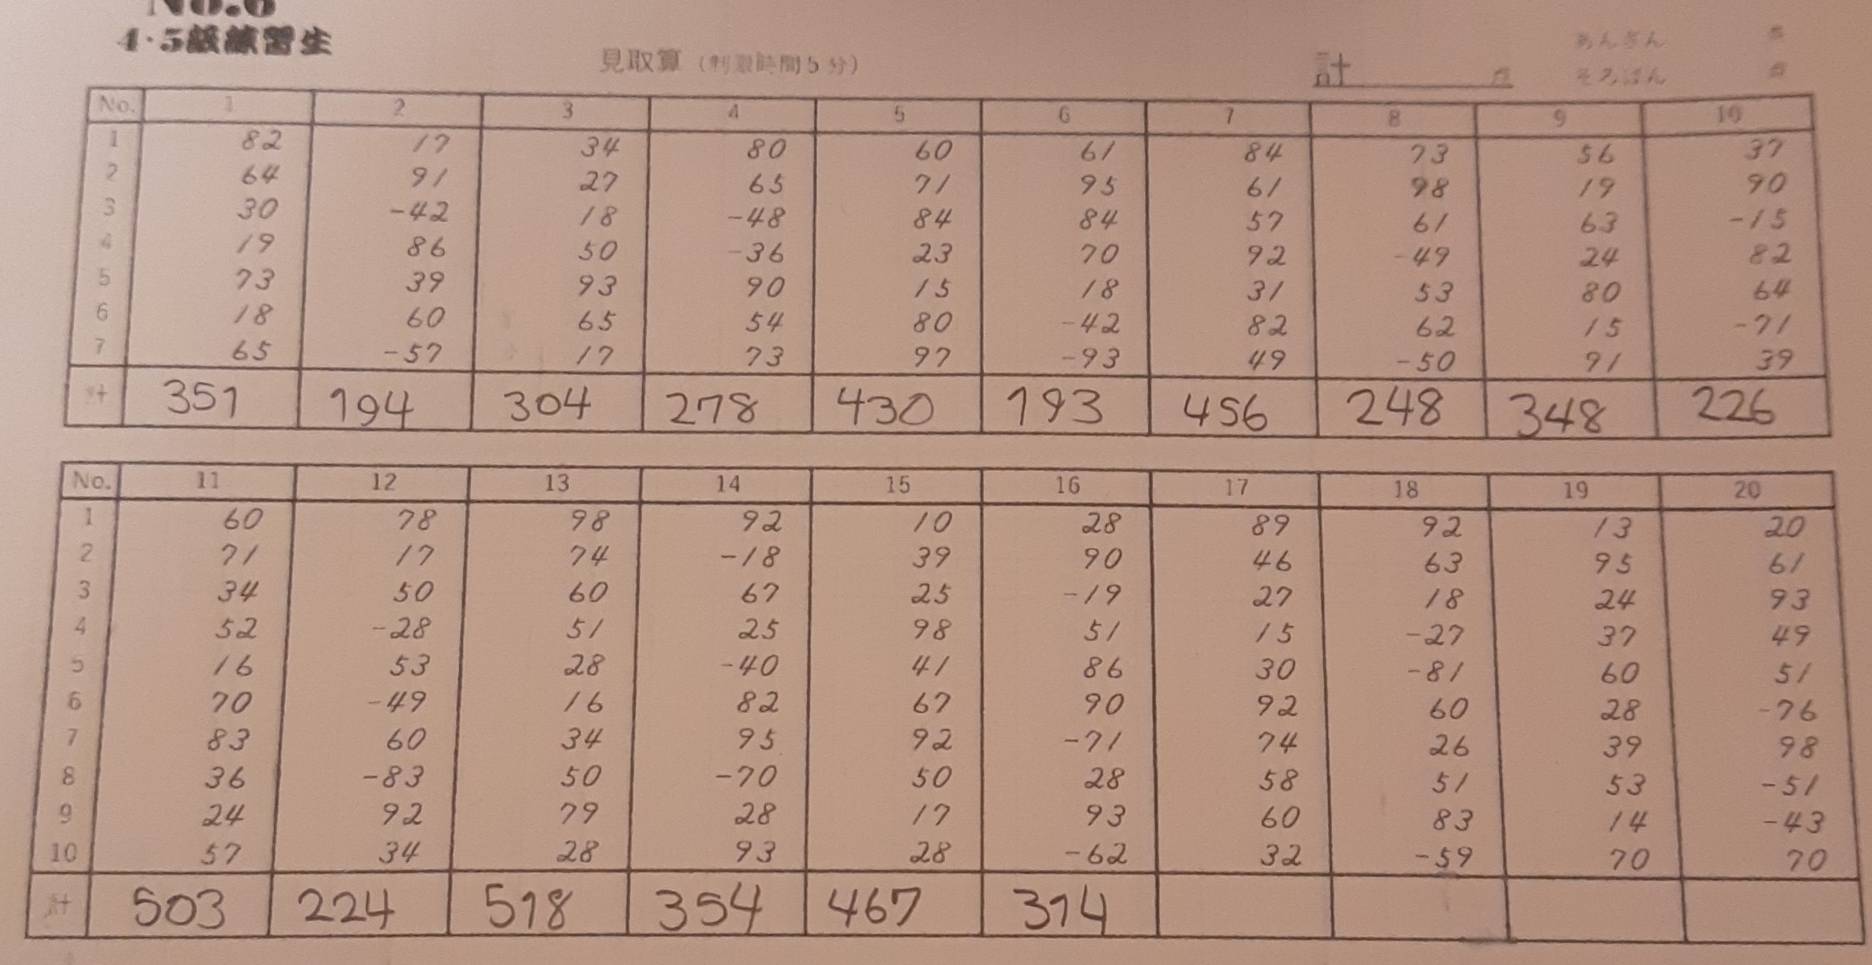 No.6
4・5級練習生
見取算（制限時間5分）
計 点
あんざん 点
そろばん 点
No. 1 2 3 4 5 6 7 8 9 10
1 82 17 34 80 60 61 84 73 56 37
2 64 91 27 65 71 95 61 98 19 90
3 30 -42 18 -48 84 84 57 61 63 -15
4 19 86 50 -36 23 70 92 -49 24 82
5 73 39 93 90 15 18 31 53 80 64
6 18 60 65 54 80 -42 82 62 15 -71
7 65 -57 17 73 97 -93 49 -50 91 39
計 351 194 304 278 430 193 456 248 348 226
No. 11 12 13 14 15 16 17 18 19 20
1 60 78 98 92 10 28 89 92 13 20
2 71 17 74 -18 39 90 46 63 95 61
3 34 50 60 67 25 -19 27 18 24 93
4 52 -28 51 25 98 51 15 -27 37 49
5 16 53 28 -40 41 86 30 -81 60 51
6 70 -49 16 82 67 90 92 60 28 -76
7 83 60 34 95 92 -71 74 26 39 98
8 36 -83 50 -70 50 28 58 51 53 -51
9 24 92 79 28 17 93 60 83 14 -43
10 57 34 28 93 28 -62 32 -59 70 70
計 503 224 518 354 467 314